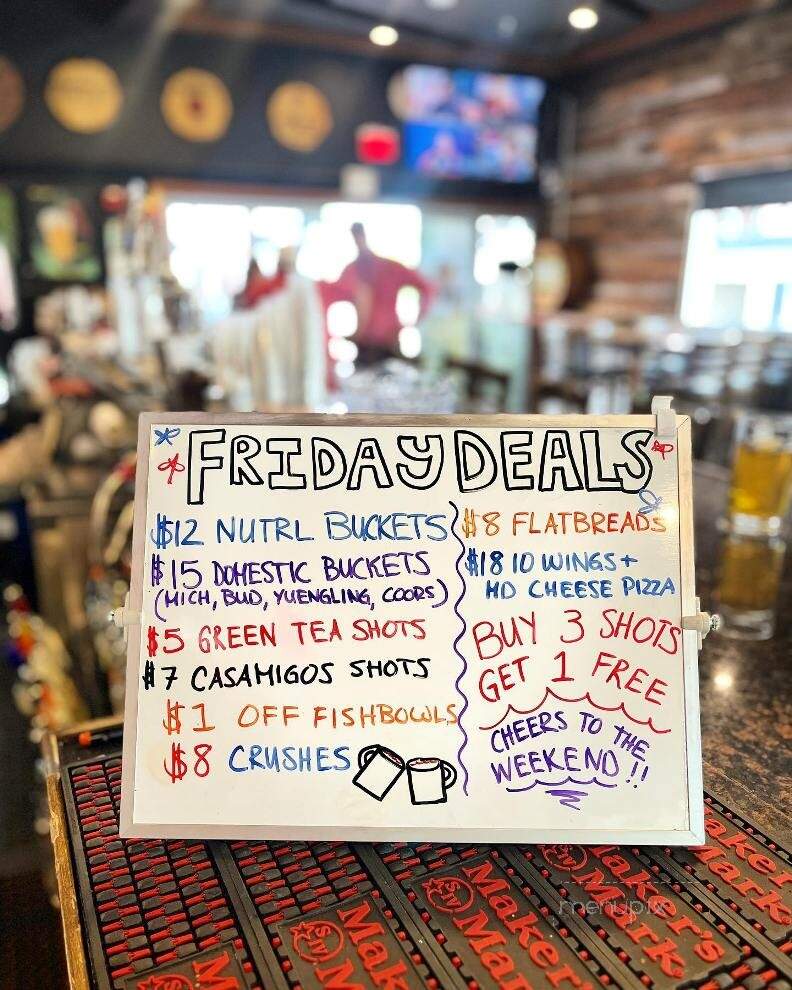 FRIDAY DEALS
$12 NUTRL BUCKETS
$15 DOMESTIC BUCKETS
(MICH, BUD, YUENGLING, COORS)
$5 GREEN TEA SHOTS
$7 CASAMIGOS SHOTS
$1 OFF FISHBOWLS
$8 CRUSHES
$8 FLATBREADS
$18 10 WINGS +
HD CHEESE PIZZA
BUY 3 SHOTS
GET 1 FREE
CHEERS TO THE
WEEKEND!!
Maker's
Mark
Maker's
Mark
Maker's
Mark
SIV
menupix